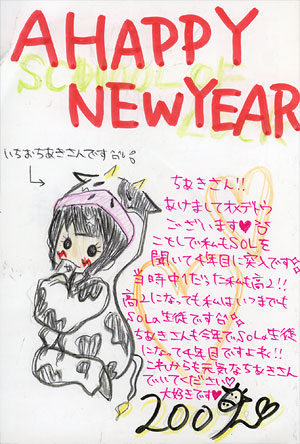 A HAPPY
SCHOOL OF
LOCK
NEW YEAR
いちおちあきさんです
ちあきさん!!
あけましておめでとう
ございます♥
ことしで私もSOLを
聞いて4年目に突入です
当時中1だった私も高2!!
高2になっても私はいつまでも
SOLa生徒です
ちあきさんも今年でSOLa生徒
になって4年目ですよね!!
これからも元気なちあきさん
でいてください♡
大好きです♥
2009